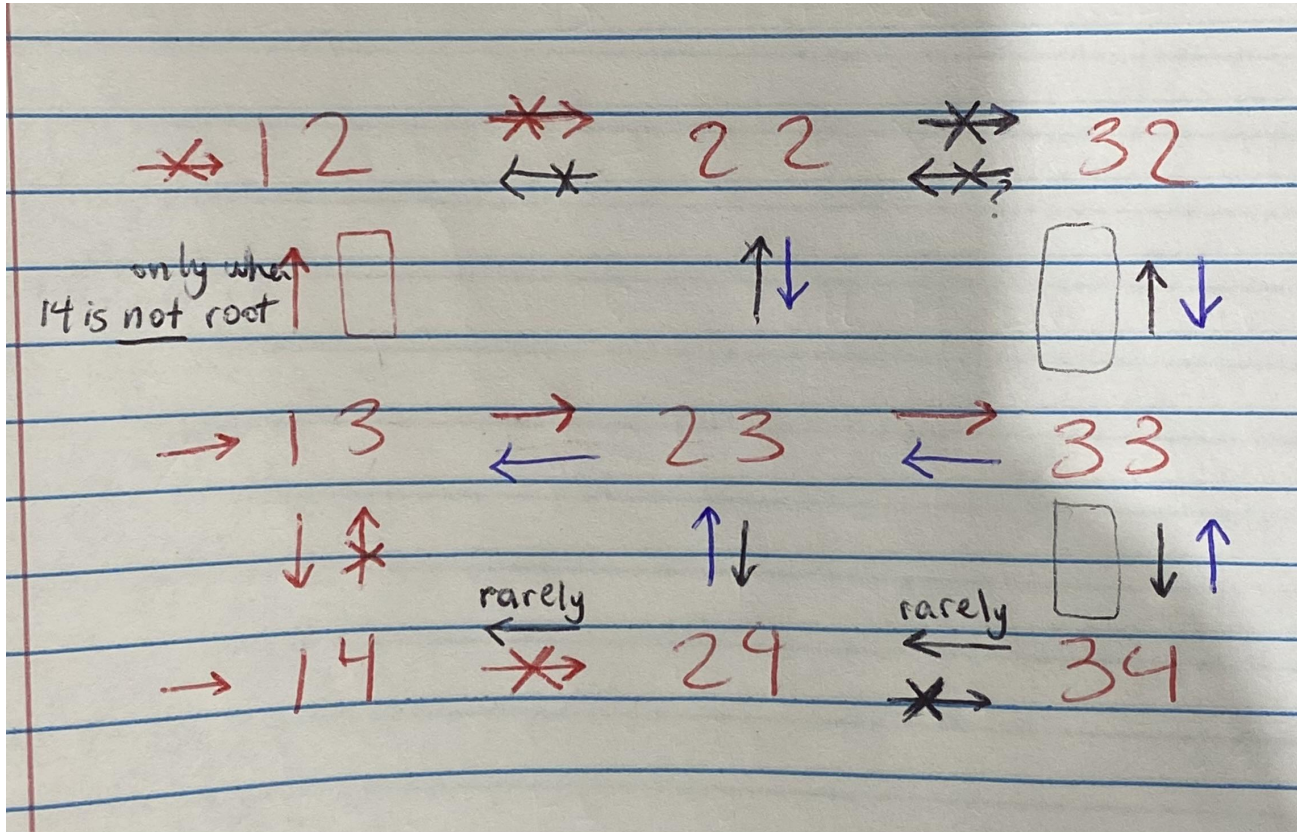 12 22 32
?
only when
14 is not root
13 23 33
rarely rarely
14 24 34